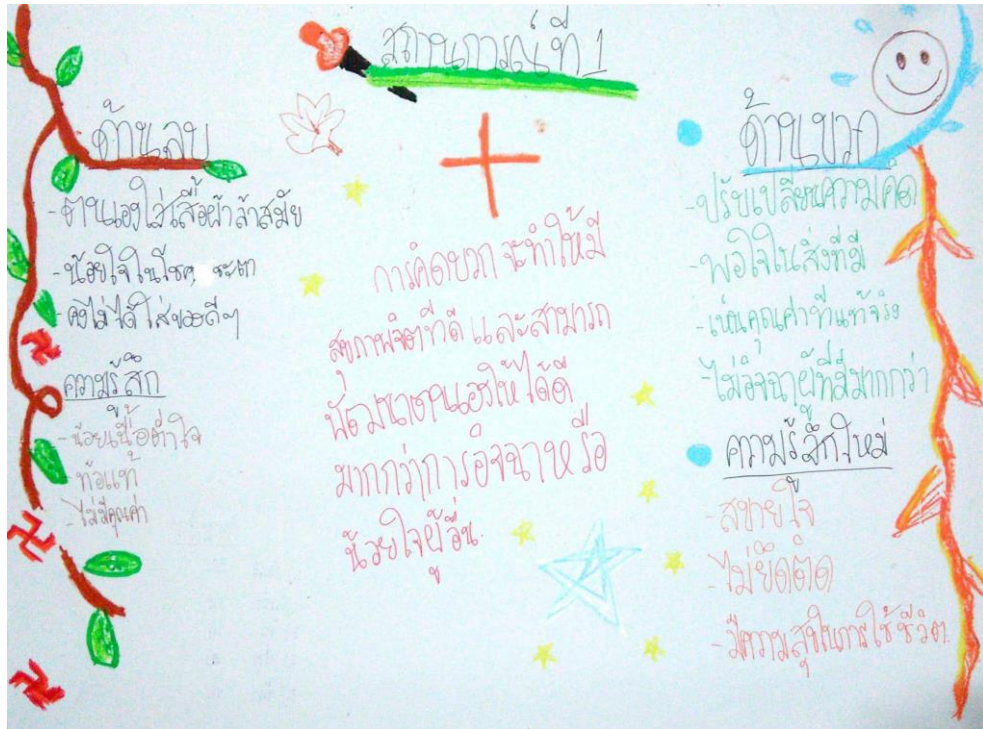 สถานการณ์ที่ 1
ด้านลบ
- ตนเองใส่เสื้อผ้าล้าสมัย
- น้อยใจในโชคชะตา
- คงไม่ได้ใส่ของดีๆ
ความรู้สึก
- น้อยเนื้อต่ำใจ
- ท้อแท้
- ไม่มีคุณค่า
+
การคิดบวก จะทำให้มี
สุขภาพจิตที่ดี และสามารถ
พัฒนาตนเองให้ได้ดี
มากกว่าการอิจฉาหรือ
น้อยใจผู้อื่น
ด้านบวก
- ปรับเปลี่ยนความคิด
- พอใจในสิ่งที่มี
- เห็นคุณค่าที่แท้จริง
- ไม่อิจฉาผู้ที่มีมากกว่า
ความรู้สึกใหม่
- สบายใจ
- ไม่ยึดติด
- มีความสุขในการใช้ชีวิต